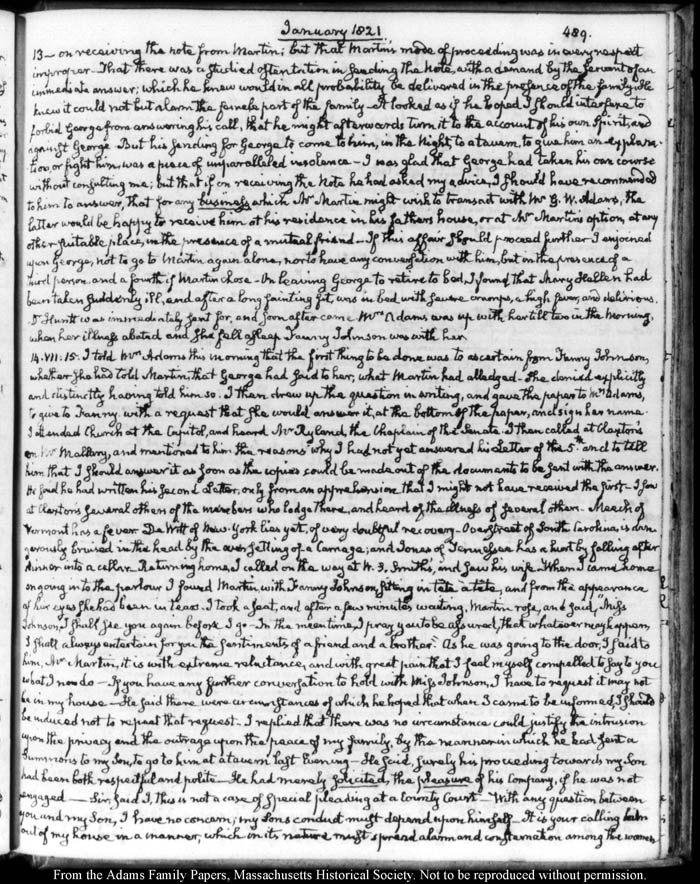 January 1821. 489.
13 — on receiving the note from Martin; but that Martin's mode of proceeding was in every respect
improper — That there was a studied ostentation in sending the Note, with a demand by the Servant of an
immediate answer; which he knew would in all probability be delivered in the presence of the family. He
knew it could not but alarm the female part of the family — It looked as if he hoped I should interfere to
forbid George from answering his call, that he might afterwards turn it to the account of his own Spirit, and
against George. But his sending for George to come to him, in the Night, to a tavern, to give him an explana-
tion, or fight him, was a piece of unparalleled insolence — I was glad that George had taken his own course
without consulting me; but that if on receiving the Note he had asked my advice, I should have recommended
to him to answer, that for any business which Mr Martin might wish to transact with Mr G. W. Adams, the
latter would be happy to receive him at his residence in his father's house, or at Mr Martin's option, at any
other suitable place, in the presence of a mutual friend — If this affair should proceed further I enjoined
upon George, not to go to Martin again alone, nor to have any conversation with him, but in the presence of a
third person, and a fourth if Martin chose — On leaving George to retire to bed, I found that Mary Hellen had
been taken suddenly ill, and after a long fainting fit, was in bed with severe cramps, a high fever, and delirious.
Dr Huntt was immediately sent for, and soon after came. Mrs Adams was up with her till two in the Morning,
when her illness abated and she fell asleep. Fanny Johnson was with her.
14. VII: 15. I told Mrs Adams this morning that the first thing to be done was to ascertain from Fanny Johnson,
whether she had told Martin that George had said to her, what Martin had alledged — She denied explicitly
and distinctly having told him so. I then drew up the question in writing, and gave the paper to Mrs Adams,
to give to Fanny with a request that she would answer it, at the bottom of the paper, and sign her name.
I attended Church at the Capitol, and heard Mr Ryland, the Chaplain of the Senate. I then called at Claxton's
on Mr Mallary, and mentioned to him the reasons why I had not yet answered his Letter of the 5th and to tell
him that I should answer it as soon as the copies could be made out of the documents to be sent with the answer.
He said he had written his second Letter, only from an apprehension that I might not have received the first — I saw
at Claxton's several others of the members who lodge there, and heard of the illness of several others. Meech of
Vermont has a fever. De Witt of New-York lies yet, of very doubtful recovery — Overstreet of South Carolina, is dan-
gerously bruised in the head by the oversetting of a Carriage; and Jones of Tennessee has a hurt by falling after
dinner into a cellar. Returning home, I called on the way at W. S. Smith's, and saw his wife. When I came home
on going into the parlour I found Martin, with Fanny Johnson, sitting in tete a tete, and from the appearance
of her eyes she had been in tears. I took a seat, and after a few minutes waiting, Martin rose, and said, "Miss
Johnson, I shall see you again before I go — In the meantime, I pray you to be assured, that whatever may happen,
I shall always entertain for you the sentiments of a friend and a brother." As he was going to the door, I said to
him, Mr Martin, it is with extreme reluctance, and with great pain that I feel myself compelled to say to you
what I now do — If you have any further conversation to hold with Miss Johnson, I have to request it may not
be in my house — He said there were circumstances of which he hoped that when I came to be informed, I should
be induced not to repeat that request. I replied that there was no circumstance could justify the intrusion
upon the privacy and the outrage upon the peace of my family, by the manner in which he had sent a
summons to my Son, to go to him at a tavern last Evening — He said, surely his proceeding towards my Son
had been both respectful and polite — He had merely solicited, the pleasure of his company, if he was not
engaged — Sir, said I, this is not a case of special pleading at a County Court — With any question between
you and my Son, I have no concern; my Son's conduct must depend upon himself. It is your calling him
out of my house in a manner, which in its nature must spread alarm and consternation among the women
From the Adams Family Papers, Massachusetts Historical Society. Not to be reproduced without permission.